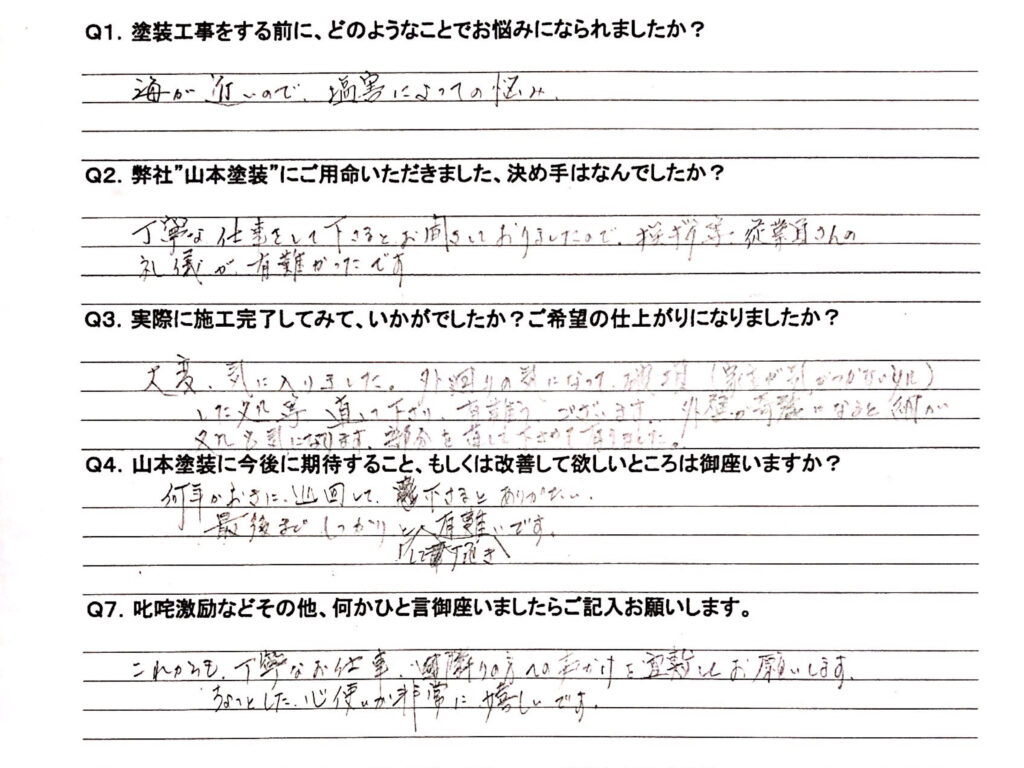 Q1. 塗装工事をする前に、どのようなことでお悩みになられましたか？
海が近いので、塩害によっての悩み、
Q2. 弊社”山本塗装”にご用命いただきました、決め手はなんでしたか？
丁寧な仕事をして下さるとお聞きしておりましたので、挨拶等・従業員さんの
礼儀が、有難かったです
Q3. 実際に施工完了してみて、いかがでしたか？ご希望の仕上がりになりましたか？
大変、気に入りました。外廻りの気になって、
した 等 直して下さり、有難う ございます、外壁が奇麗になると
気になります、部分を 直して下さって頂きました。!
Q4. 山本塗装に今後に期待すること、もしくは改善して欲しいところは御座いますか？
何年かおきに、巡回して、下さるとありがたい、
最後まで しっかりと 有難いです。
して頂き
Q7. 叱咤激励などその他、何かひと言御座いましたらご記入お願いします。
これからも、丁寧なお仕事、隣りの方への声かけを宜敷くお願いします、
ちょっとした、心使いが非常に、嬉しいです。